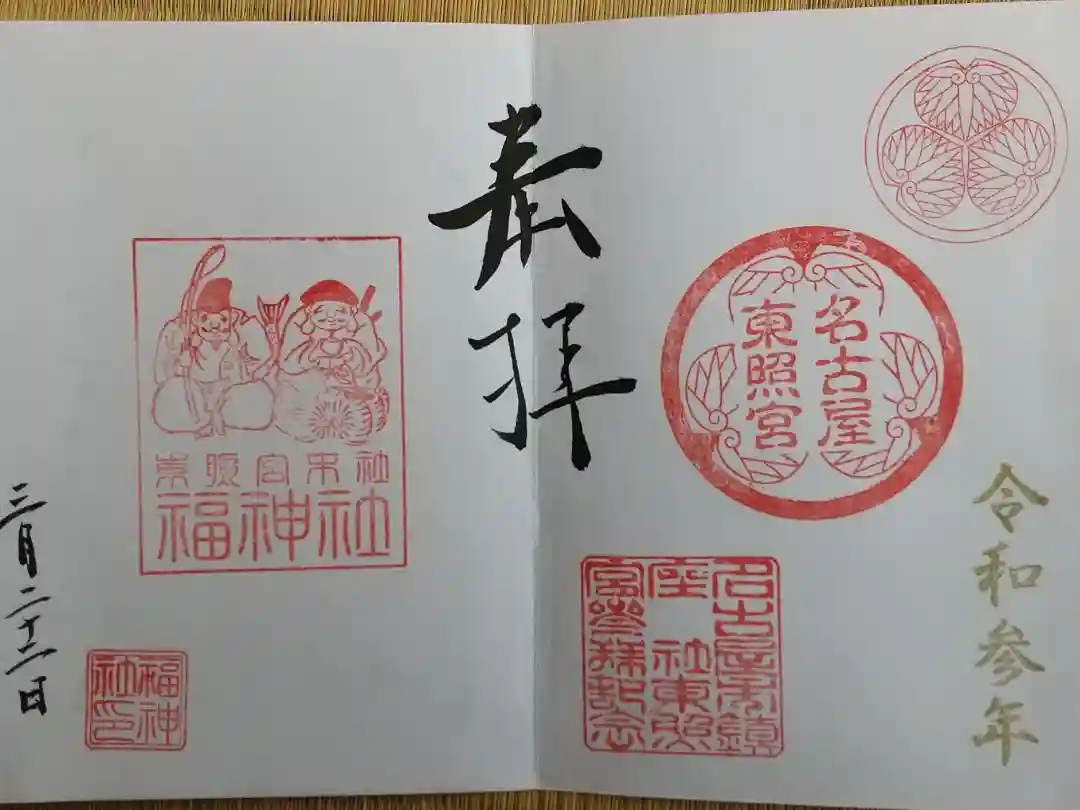 令和参年
名古屋
東照宮
名古屋市鎮
座 社東照
宮參拜記念
奉拝
東照宮末社
福神社
福神
社印
三月二十二日